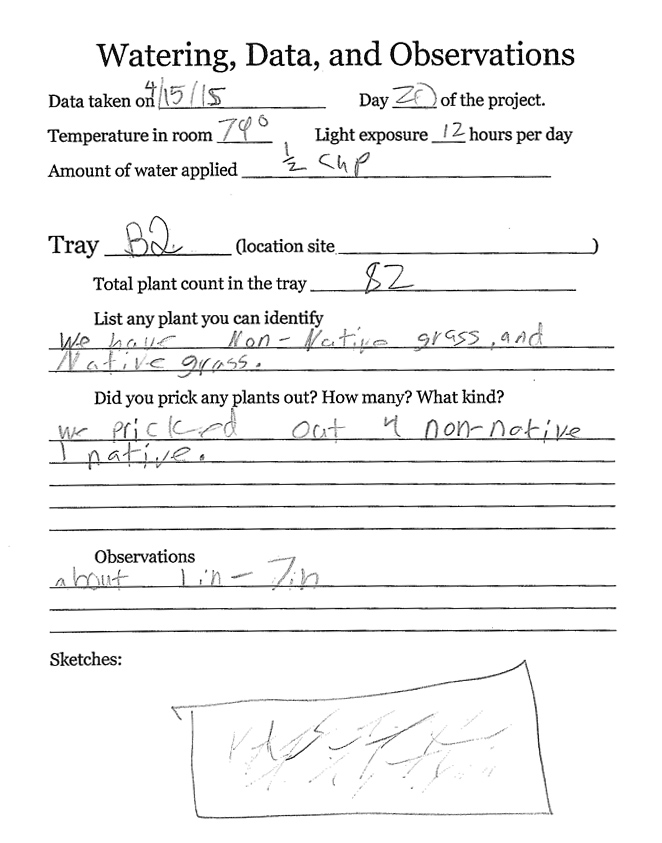 Watering, Data, and Observations
Data taken on 4/15/15 Day 20 of the project.
Temperature in room 74° Light exposure 12 hours per day
Amount of water applied 1/2 cup
Tray B2 (location site )
Total plant count in the tray 82
List any plant you can identify
We have Non-Native grass, and
Native grass.
Did you prick any plants out? How many? What kind?
we pricked out 4 non-native
1 native.
Observations
about 1in - 7in
Sketches: